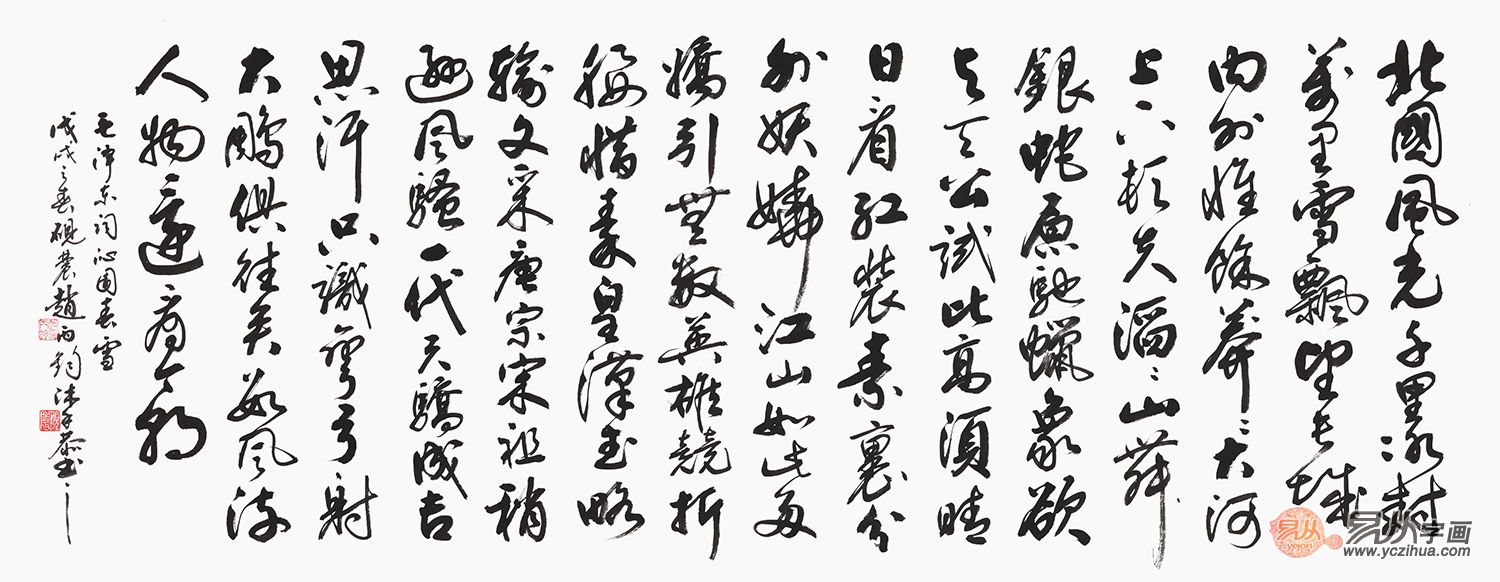 北國風光千里冰封
萬里雪飄望長城
内外惟餘莽〻大河
上下頓失滔〻山舞
銀蛇原馳蠟象欲
与天公試比高須晴
日看紅裝素裹分
外妖嬈江山如此多
嬌引無數英雄競折
腰惜秦皇漢武略
輸文采唐宗宋祖稍
遜風騷一代天驕成吉
思汗只識彎弓射
大鵰俱往矣數風流
人物還看今朝
毛澤東詞沁園春雪
戊戌之春硯農趙鈞沐手恭书
易从
yicon
易从字画
www.yczihua.com